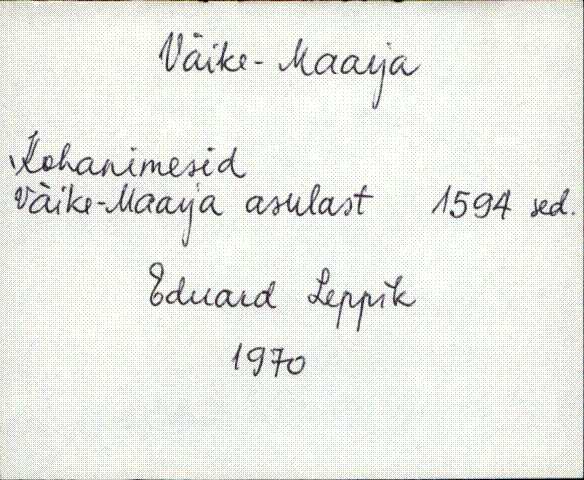 Väike-Maarja
Kohanimesid
Väike-Maarja asulast 1594 sed.
Eduard Leppik
1970